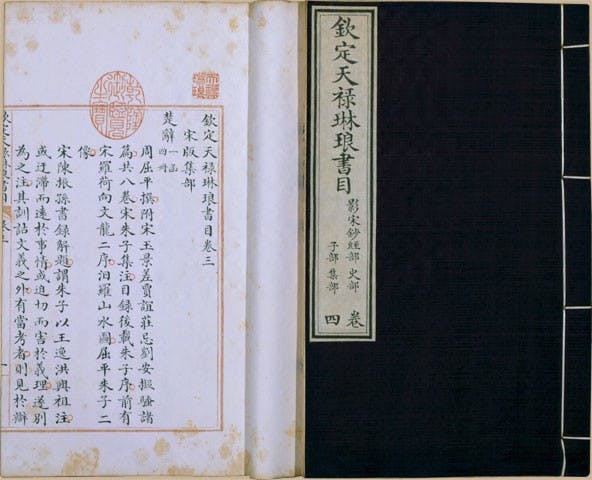 欽定天禄琳琅書目
影宋鈔經部 史部
子部 集部
卷
四
乾隆御覽之寶
欽定天禄琳琅書目卷三
宋版集部
楚辭 一函四冊
周屈平撰附宋玉景差賈誼莊忌劉安擬騷諸
篇共八卷宋朱子集注目錄後載朱子序前有
宋羅荷向文龍二序汨羅山水圖屈平朱子二
像
宋陳振孫書錄解題謂朱子以王逸洪興祖注
或迂滯而遠於事情或迫切而害於義理遂別
為之注其訓詁文義之外有當考者則見於辯